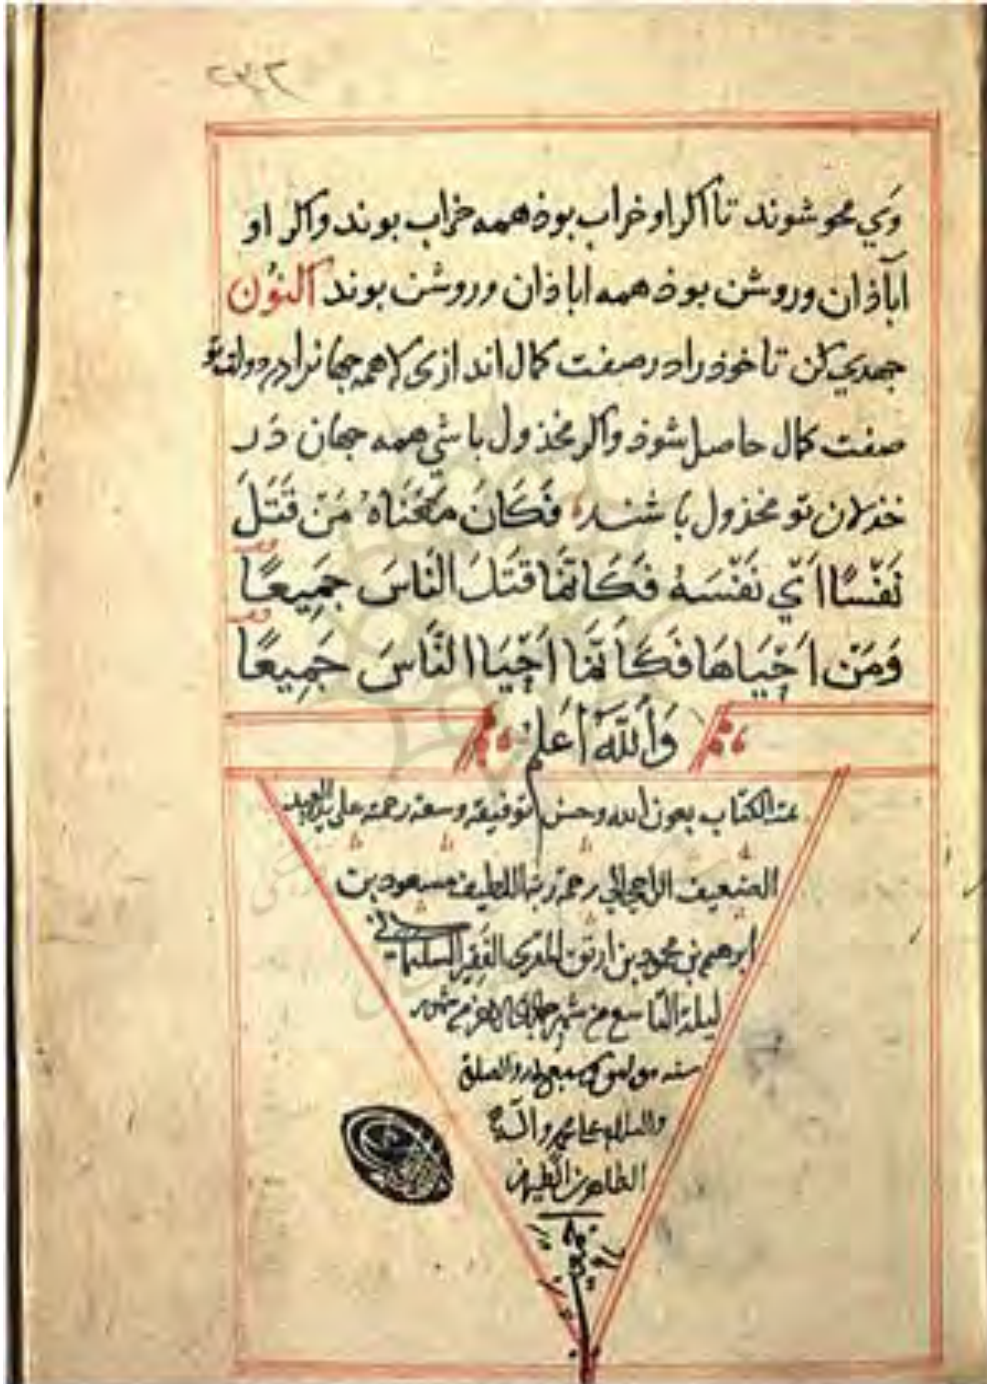 ۲۳۳
وَي محو شوند تا اکر او خراب بوذ همه خراب بوند واکر او
اباذان وروشن بوذ همه اباذان وروشن بوند اکنون
جهدي کن تا خوذ را در صفت کمال اندازی کا همه جهانرا در دولت تو
صفت کمال حاصل شوذ واکر مخذول باشي همه جهان دَر
خذلان تو مخذول باشند فَكَانَ مَعْنَاهُ مَنْ قَتَلَ
نَفْسًا اَيْ نَفْسَهُ فَكَانَّمَا قَتَلَ النَّاسَ جَمِيعًا
وَمَنْ اَحْيَاهَا فَكَاَنَّمَا اَحْيَا النَّاسَ جَمِيعًا
وَاللهُ اَعْلَمُ
تمت الكتاب بعون الله وحسن توفيقه وسعة رحمته على يد العبد
الضعيف الراجي الي رحمة ربه اللطيف مسعود بن
ابرهيم بن محمود بن ارتق المقري الفقير السليماني
ليلة التاسع من شهر جمادى شهور
سنه والصلوة
والسلام على محمد وآله
الطاهرين